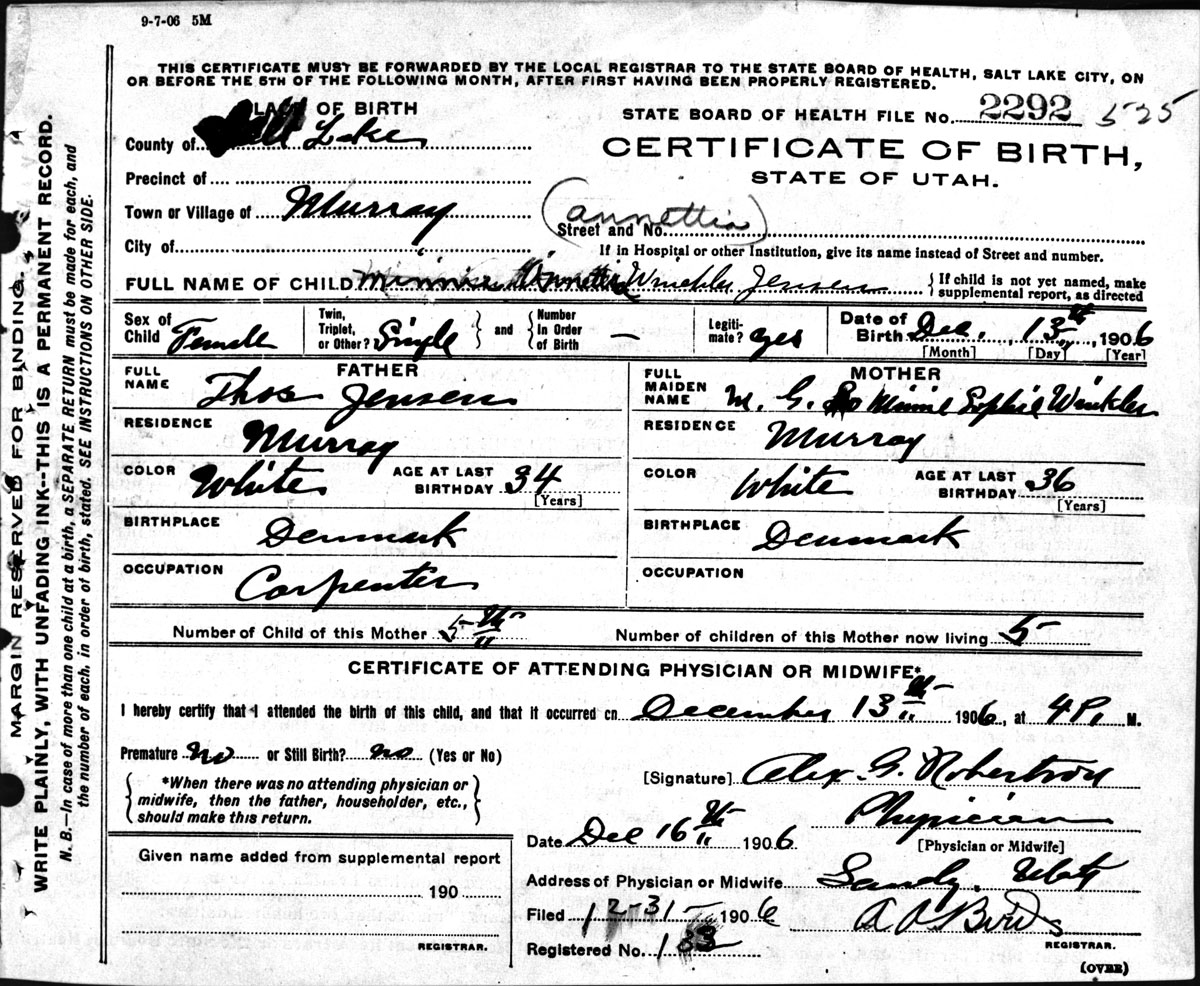 9-7-06 5M
THIS CERTIFICATE MUST BE FORWARDED BY THE LOCAL REGISTRAR TO THE STATE BOARD OF HEALTH, SALT LAKE CITY, ON
OR BEFORE THE 5TH OF THE FOLLOWING MONTH, AFTER FIRST HAVING BEEN PROPERLY REGISTERED.
PLACE OF BIRTH
County of Salt Lake
Precinct of
Town or Village of Murray
City of
STATE BOARD OF HEALTH FILE No. 2292 525
CERTIFICATE OF BIRTH,
STATE OF UTAH.
(Annettia)
Street and No.
If in Hospital or other Institution, give its name instead of Street and number.
FULL NAME OF CHILD Minnie Annettia Winkler Jensen
{ If child is not yet named, make
supplemental report, as directed
Sex of Child Female
Twin, Triplet, or Other? Single } and { Number In Order of Birth —
Legitimate? yes
Date of Birth Dec. 13th, 1906
[Month] [Day] [Year]
FATHER
FULL NAME Thos Jensen
RESIDENCE Murray
COLOR White AGE AT LAST BIRTHDAY 34
[Years]
BIRTHPLACE Denmark
OCCUPATION Carpenter
MOTHER
FULL MAIDEN NAME M. G. Minnie Sophie Winkler
RESIDENCE Murray
COLOR White AGE AT LAST BIRTHDAY 36
[Years]
BIRTHPLACE Denmark
OCCUPATION
Number of Child of this Mother 5th Number of children of this Mother now living 5
CERTIFICATE OF ATTENDING PHYSICIAN OR MIDWIFE*
I hereby certify that I attended the birth of this child, and that it occurred on December 13th 1906, at 4 P. M.
Premature no or Still Birth? no (Yes or No)
{ *When there was no attending physician or
midwife, then the father, householder, etc.,
should make this return. }
[Signature] Alex. G. Robertson
Physician
[Physician or Midwife]
Date Dec 16th 1906
Address of Physician or Midwife Sandy, Utah
Filed 12-31- 1906
REGISTRAR.
Registered No. 133
(OVER)
Given name added from supplemental report
190
REGISTRAR.
MARGIN RESERVED FOR BINDING.
WRITE PLAINLY, WITH UNFADING INK--THIS IS A PERMANENT RECORD.
N. B.—In case of more than one child at a birth, a SEPARATE RETURN must be made for each, and
the number of each, in order of birth, stated. SEE INSTRUCTIONS ON OTHER SIDE.